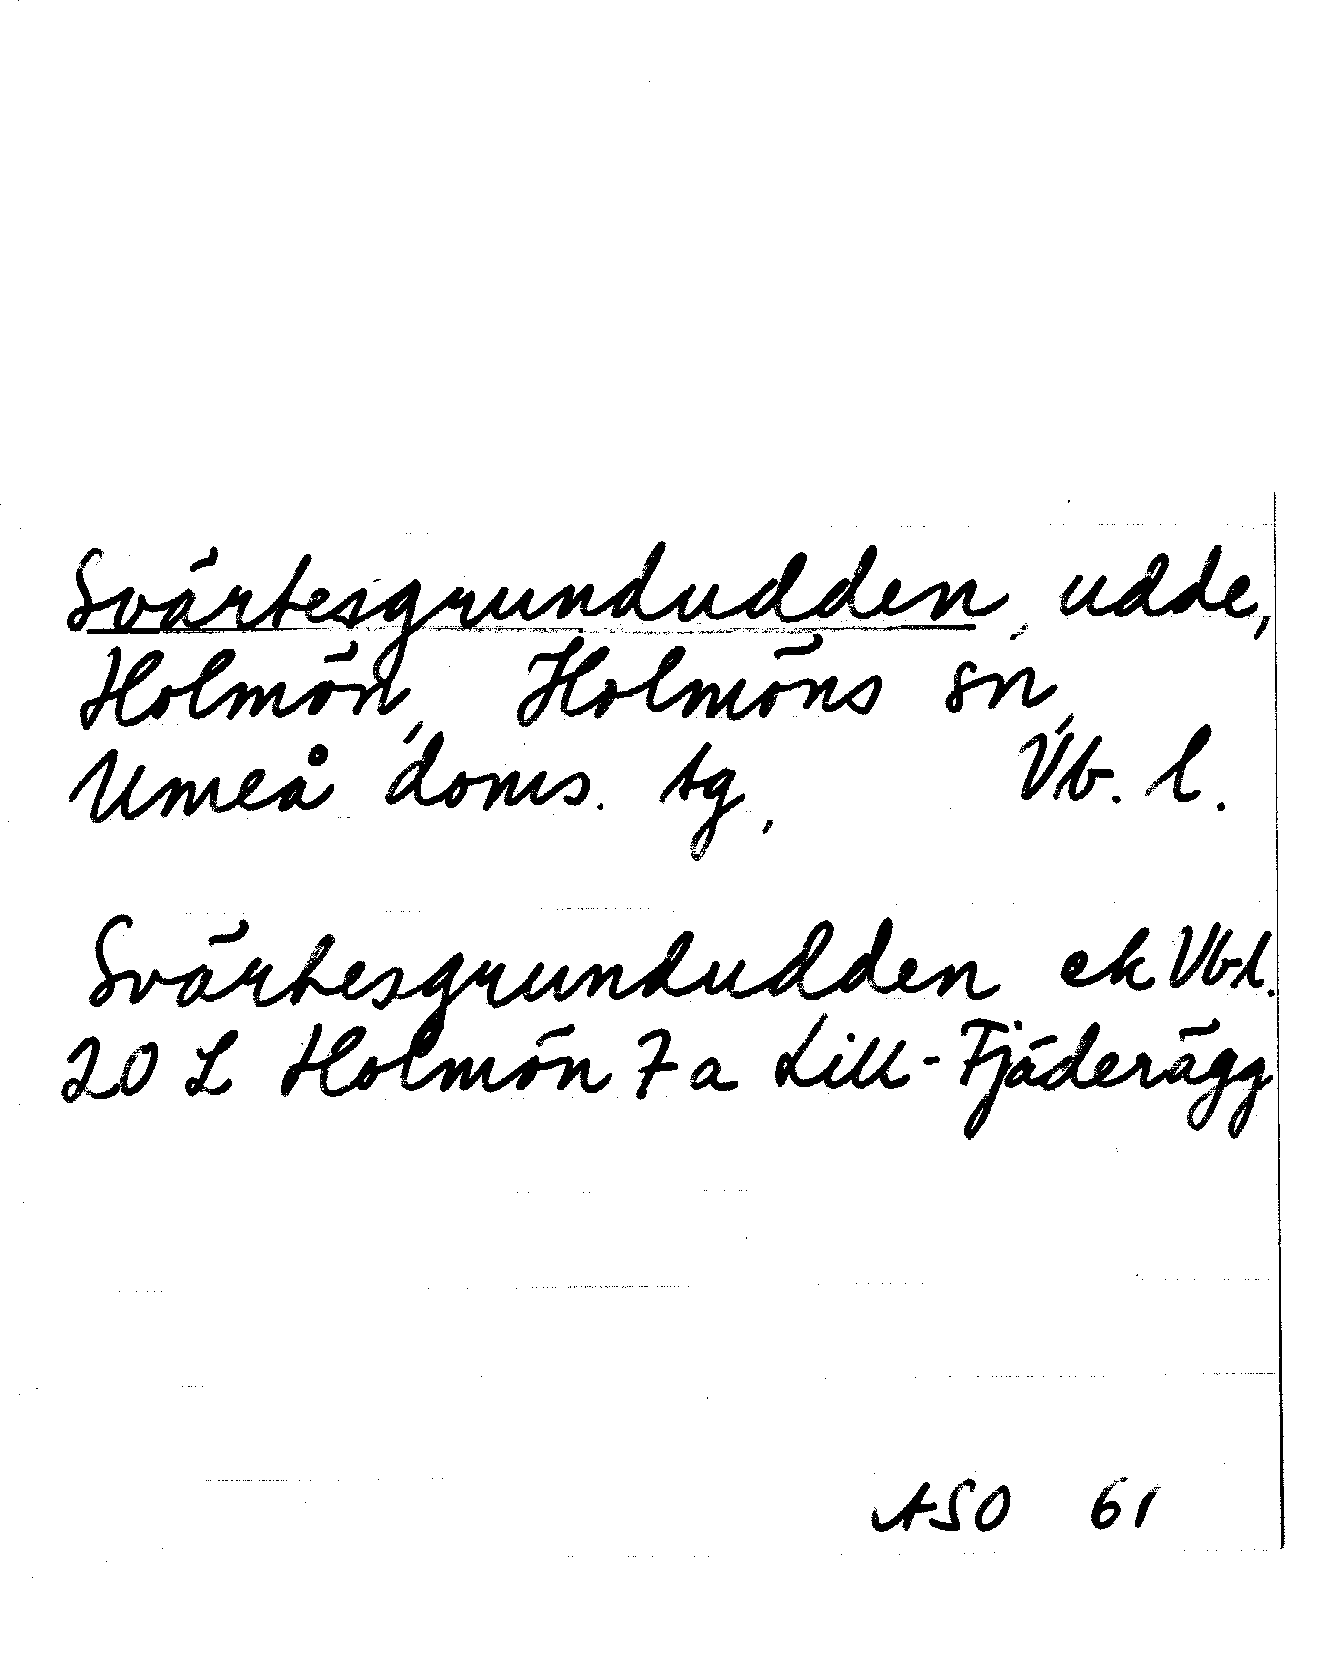 Svärtesgrundudden, udde,
Holmön, Holmöns sn,
Umeå doms. tg, Vb. l.
Svärtesgrundudden ek Vb.l.
20 L Holmön 7a Lill-Fjäderägg
ASO 61